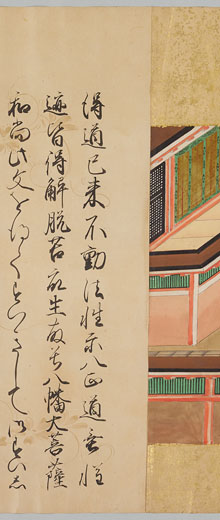 得道已来不動法性示八正道垂権
迹皆得解脱苦衆生故号八幡大菩薩
和尚此文を